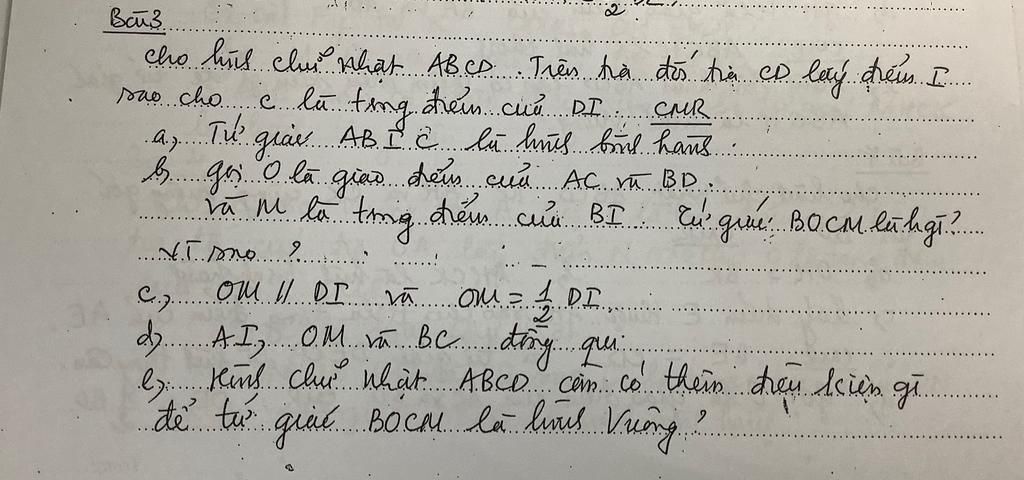 2
Bài 3
cho hình chữ nhật ABCD. Trên tia đối tia CD lấy điểm I
sao cho C là trung điểm của DI. CMR
a, Tứ giác ABIC là hình bình hành.
b, gọi O là giao điểm của AC và BD.
và M là trung điểm của BI. Tứ giác BOCM là h gì?
Vì sao?
c, OM // DI và OM = 1/2 DI.
d, AI, OM và BC đồng qui.
e, Hình chữ nhật ABCD cần có thêm điều kiện gì
để tứ giác BOCM là hình vuông?